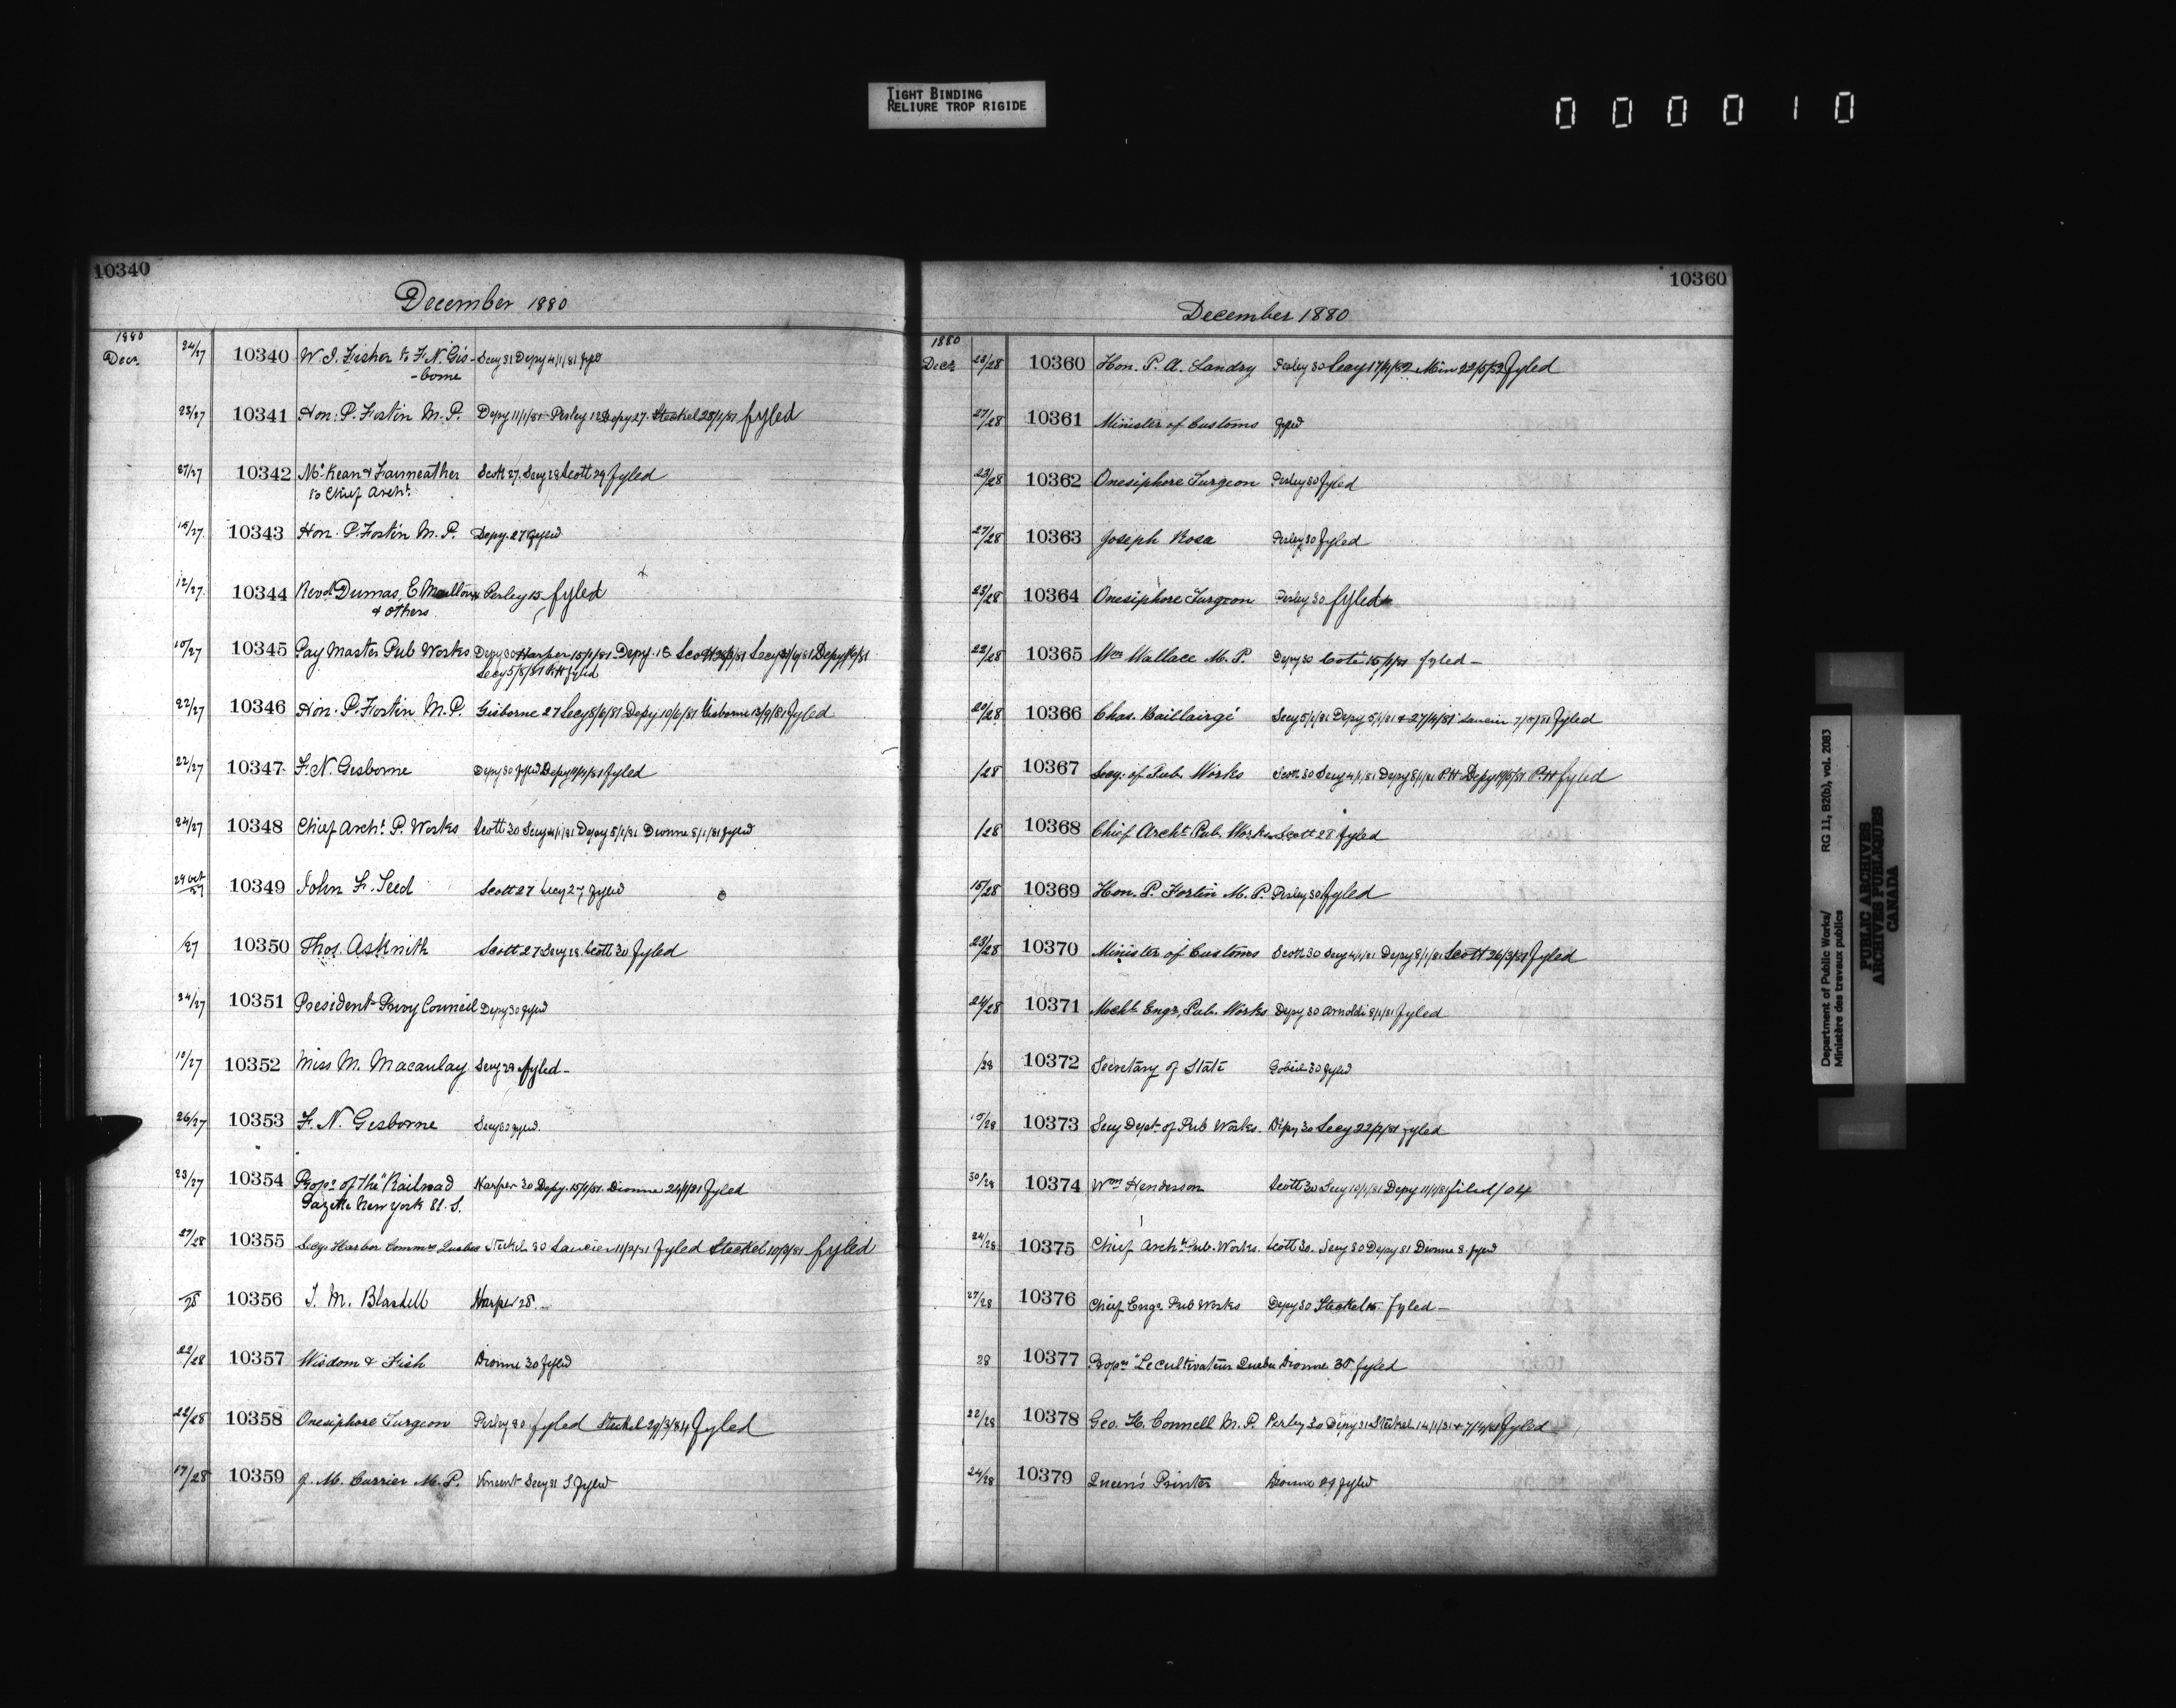 TIGHT BINDING
RELIURE TROP RIGIDE
000010
10340
December 1880
1880
Decr. 24/27 10340 W. J. Fisher to F. N. Gis- Secy 31 Depy 4/1/81 fyled
-borne
23/27 10341 Hon. P. Fortin M. P. Depy 11/1/81 Perley 12 Depy 27. Steckel 28/1/81 fyled
27/27 10342 McKean & Fairweather Scott 27. Secy 28 Scott 29 fyled
to Chief Archt.
15/27 10343 Hon. P. Fortin M. P. Depy. 27 fyled
12/27 10344 Revd Dumas, E. Perley 15 fyled
& others
10/27 10345 Pay Master Pub Works Depy 30 Harper 15/1/81 Depy. 18 Scott Secy Depy
Secy 5/8/81 fyled
22/27 10346 Hon. P. Fortin M. P. Gisborne 27 Secy 8/6/81 Depy 10/6/81 Gisborne 13/9/81 fyled
22/27 10347 F. N. Gisborne Depy 30 fyled Depy fyled
24/27 10348 Chief Archt. P. Works Scott 30 Secy 4/1/81 Depy 5/1/81 Dionne 8/1/81 fyled
29 Oct/27 10349 John F. Teed Scott 27 Secy 27 fyled
/27 10350 Thos. Asknith Scott 27 Secy 28 Scott 30 fyled
24/27 10351 President Privy Council Depy 30 fyled
10352 Miss M. Macaulay Secy 29 fyled
26/27 10353 F. N. Gisborne Secy 30 fyled
23/27 10354 Propr. of the "Railroad Harper 30 Depy. 15/1/81. Dionne 24/1/81 fyled
Gazette New York U. S.
27/28 10355 Secy. Harbor Commrs Quebec Steckel 30 Lancier 11/2/81 fyled Steckel 10/3/81 fyled
/28 10356 J. M. Blaidell Harper 28.
22/28 10357 Wisdom & Fish Dionne 30 fyled
22/28 10358 Onesiphore Turgeon Perley 30 fyled Steckel 29/3/84 fyled
17/28 10359 J. M. Currier M. P. Vincent Secy 31 fyled
10360
December 1880
1880
Decr. 23/28 10360 Hon. P. A. Landry Perley 30 Secy Min 22/5/82 fyled
27/28 10361 Minister of Customs fyled
23/28 10362 Onesiphore Turgeon Perley 30 fyled
27/28 10363 Joseph Rosa Perley 30 fyled
23/28 10364 Onesiphore Turgeon Perley 30 fyled
22/28 10365 Wm Wallace M. P. Depy 30 Coté 15/1/81 fyled
20/28 10366 Chas. Baillairgé Secy 5/1/81 Depy 5/1/81 & fyled
/28 10367 Secy. of Pub. Works Scott 30 Secy 4/1/81 Depy 8/1/81 P.H Depy P.H fyled
/28 10368 Chief Archt. Pub. Works Scott 28 fyled
15/28 10369 Hon. P. Fortin M. P. Perley 30 fyled
23/28 10370 Minister of Customs Scott 30 Secy 4/1/81 Depy 8/1/81 Scott 26/3/81 fyled
24/28 10371 Mechl. Engr. Pub. Works Depy 30 Arnoldi 8/1/81 fyled
/28 10372 Secretary of State Gobeil 30 fyled
10373 Secy Dept. of Pub Works. Depy 30 Secy 22/2/81 fyled
30/28 10374 Wm Henderson Scott 30 Secy 10/1/81 Depy 11/1/81 filed / 04
24/28 10375 Chief Archt. Pub. Works. Scott 30. Secy 30 Depy 31 Dionne 8. fyled
27/28 10376 Chief Engr. Pub Works Depy 30 Steckel fyled
28 10377 Proprs "Le Cultivateur Quebec Dionne 30 fyled
22/28 10378 Geo. H. Connell M. P. Perley 30 Depy 31 Steckel fyled
24/28 10379 Queen's Printer Dionne 29 fyled
Department of Public Works/ RG 11, B2(b), vol. 2083
Ministère des travaux publics
PUBLIC ARCHIVES
ARCHIVES PUBLIQUES
CANADA